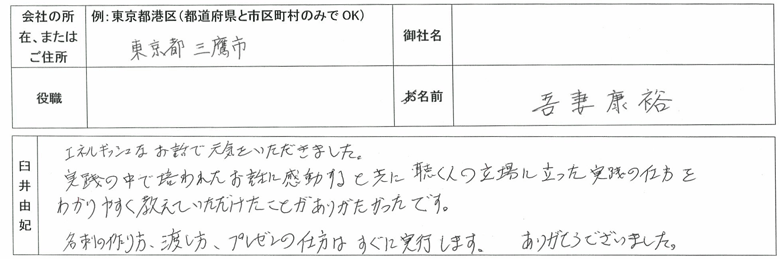 会社の所在、またはご住所
例：東京都港区（都道府県と市区町村のみでOK）
東京都 三鷹市
御社名
役職
お名前
吾妻康裕
臼井由妃
エネルギッシュなお話で元気をいただきました。
実践の中で培われたお話に感動すると共に聴く人の立場に立った実践の仕方を
わかりやすく教えていただけたことがありがたかったです。
名刺の作り方、渡し方、プレゼンの仕方はすぐに実行します。 ありがとうございました。